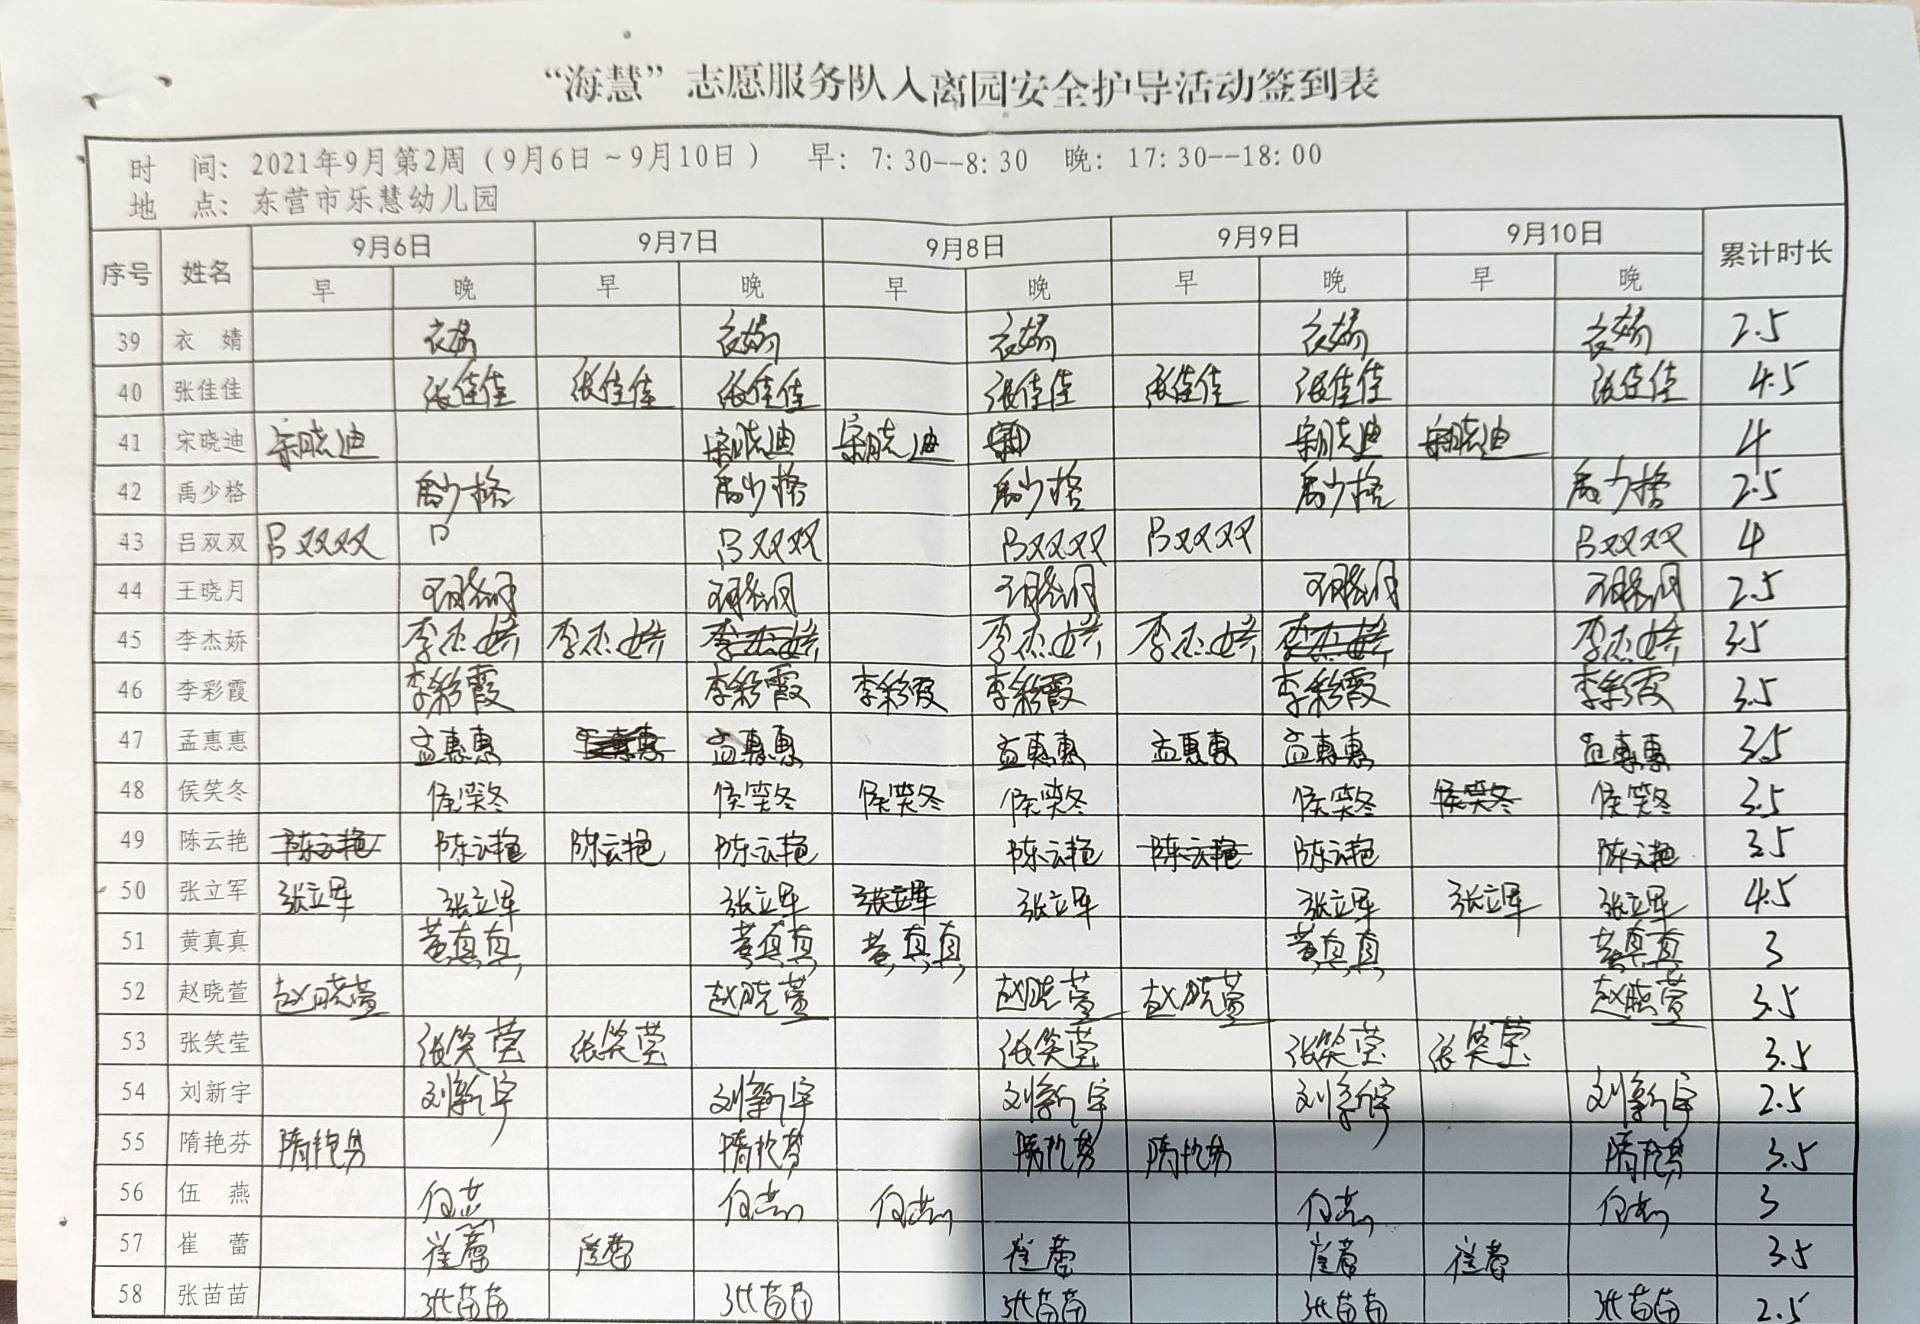 “海慧”志愿服务队入离园安全护导活动签到表
时 间：2021年9月第2周（9月6日～9月10日） 早：7:30--8:30 晚：17:30--18:00
地 点：东营市乐慧幼儿园
序号 姓名 9月6日 9月7日 9月8日 9月9日 9月10日 累计时长
早 晚 早 晚 早 晚 早 晚 早 晚
39 衣 婧 衣婧 衣婧 衣婧 衣婧 衣婧 2.5
40 张佳佳 张佳佳 张佳佳 张佳佳 张佳佳 张佳佳 张佳佳 张佳佳 4.5
41 宋晓迪 宋晓迪 宋晓迪 宋晓迪 宋晓迪 宋晓迪 4
42 禹少格 禹少格 禹少格 禹少格 禹少格 禹少格 2.5
43 吕双双 吕双双 口 吕双双 吕双双 吕双双 吕双双 4
44 王晓月 王晓月 王晓月 王晓月 王晓月 王晓月 2.5
45 李杰娇 李杰娇 李杰娇 李杰娇 李杰娇 李杰娇 李杰娇 李杰娇 3.5
46 李彩霞 李彩霞 李彩霞 李彩霞 李彩霞 李彩霞 李彩霞 3.5
47 孟惠惠 孟惠惠 孟惠惠 孟惠惠 孟惠惠 孟惠惠 孟惠惠 3.5
48 侯笑冬 侯笑冬 侯笑冬 侯笑冬 侯笑冬 侯笑冬 侯笑冬 侯笑冬 3.5
49 陈云艳 陈云艳 陈云艳 陈云艳 陈云艳 陈云艳 陈云艳 陈云艳 陈云艳 3.5
50 张立军 张立军 张立军 张立军 张立军 张立军 张立军 张立军 张立军 4.5
51 黄真真 黄真真 黄真真 黄真真 黄真真 黄真真 3
52 赵晓萱 赵晓萱 赵晓萱 赵晓萱 赵晓萱 赵晓萱 3.5
53 张笑莹 张笑莹 张笑莹 张笑莹 张笑莹 张笑莹 3.5
54 刘新宇 刘新宇 刘新宇 刘新宇 刘新宇 刘新宇 2.5
55 隋艳芬 隋艳芬 隋艳芬 隋艳芬 隋艳芬 隋艳芬 3.5
56 伍 燕 伍燕 伍燕 伍燕 伍燕 伍燕 3
57 崔 蕾 崔蕾 崔蕾 崔蕾 崔蕾 崔蕾 3.5
58 张苗苗 张苗苗 张苗苗 张苗苗 张苗苗 张苗苗 2.5